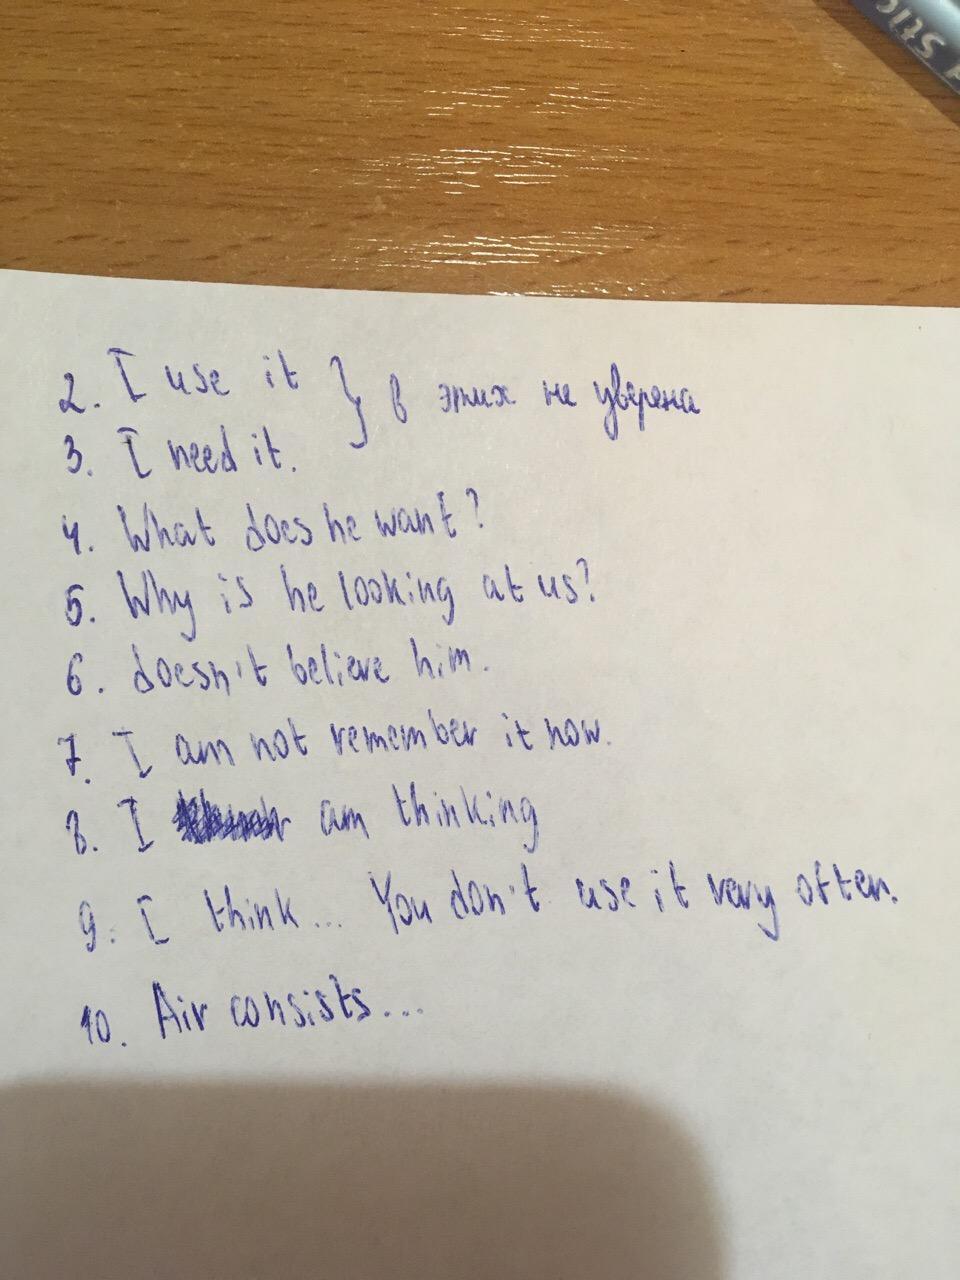 2. I use it } в этих не уверена
3. I need it.
4. What does he want?
5. Why is he looking at us?
6. doesn't believe him.
7. I am not remember it now.
8. I am thinking
9. I think... You don't use it very often.
10. Air consists...